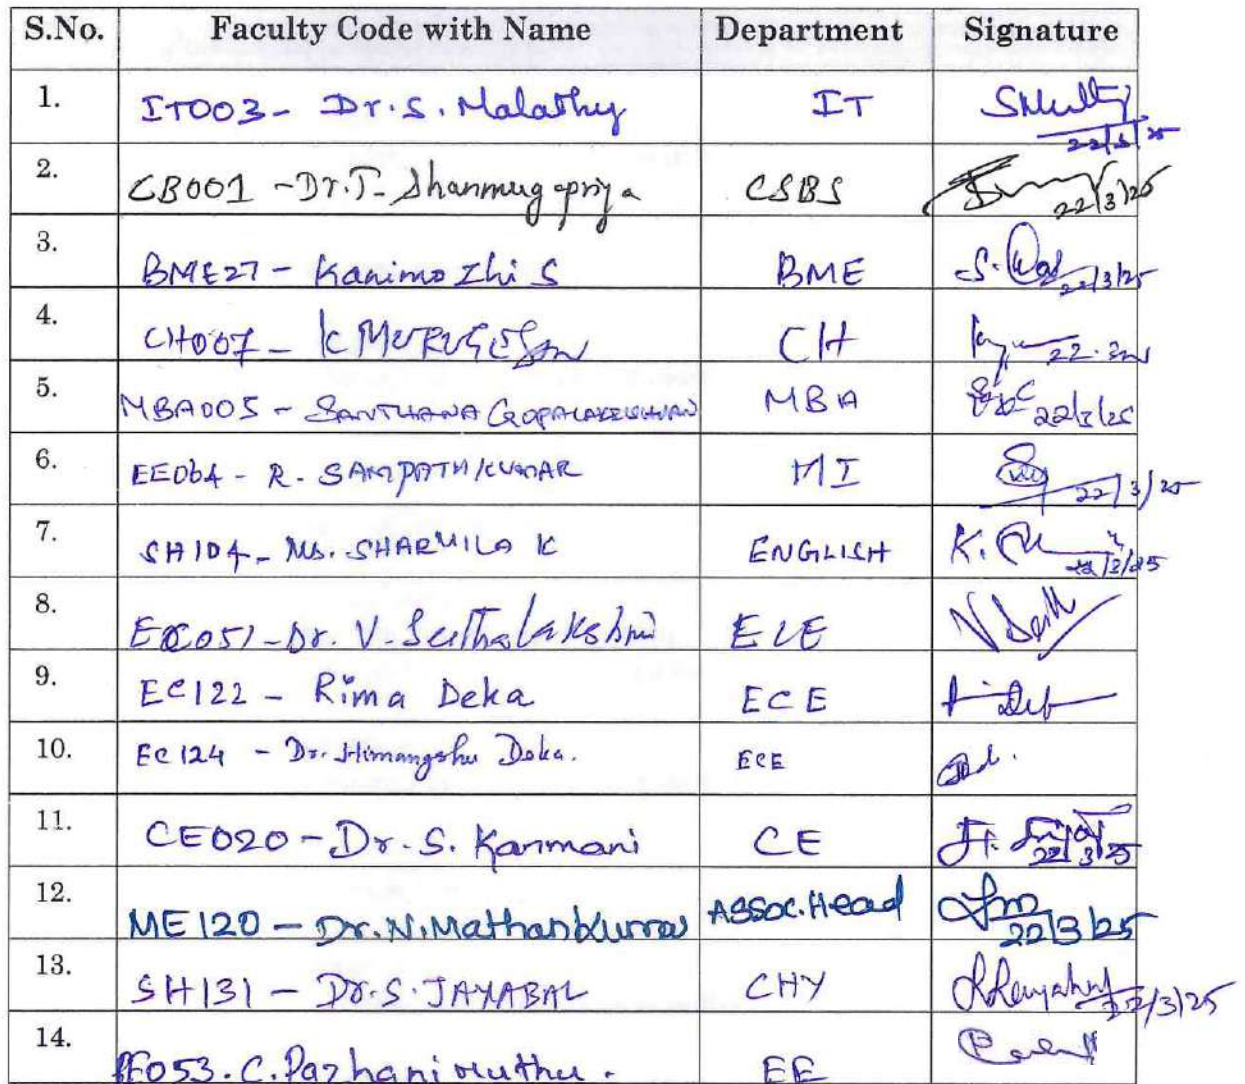 S.No. Faculty Code with Name Department Signature
1. IT003- Dr.S. Malathy IT 22/3/25
2. CB001 -Dr.T- Shanmugapriya CSBS 22/3/25
3. BME27 - Kanimozhi S BME 22/3/25
4. CH007 - K MURUGESan CH 22.
5. MBA005 - SANTHANA GOPALAKRISHNAN MBA 22/3/25
6. EE064 - R. SAMPATHKUMAR MI 22/3/25
7. SH104 - Ms. SHARMILA K ENGLISH K. 22/3/25
8. EC051-Dr. V. Seethalakshmi ECE
9. EC122 - Rima Deka ECE
10. EC124 - Dr. Himangshu Deka. ECE
11. CE020 - Dr. S. Kanmani CE 22/3/25
12. ME120 - Dr.N.Mathankumar ASSOC.Head 22/3/25
13. SH131 - Dr.S.JAYABAL CHY 22/3/25
14. EE053. C. Pazhanimuthu. EE